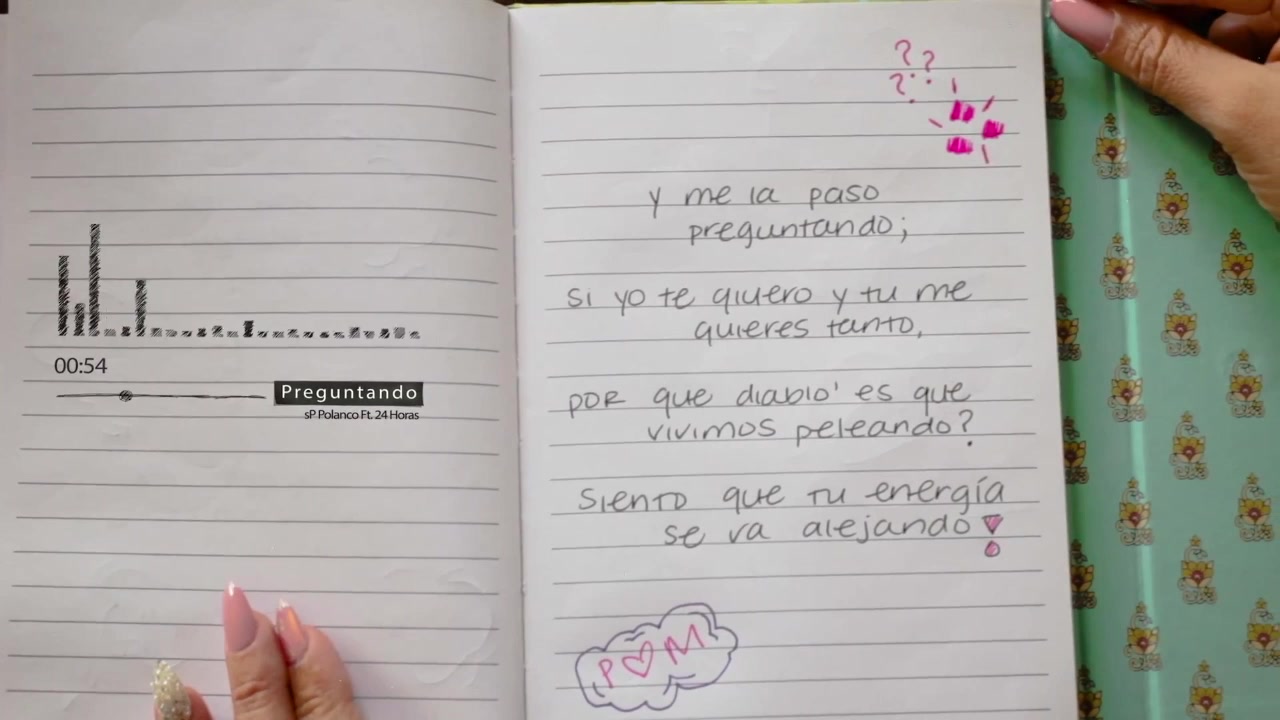 00:54
Preguntando
sP Polanco Ft. 24 Horas
? ?
?
y me la paso
preguntando;
si yo te qiuero y tu me
quieres tanto,
por que diablo' es que
vivimos peleando?
siento que tu energía
se va alejando!
P♡M